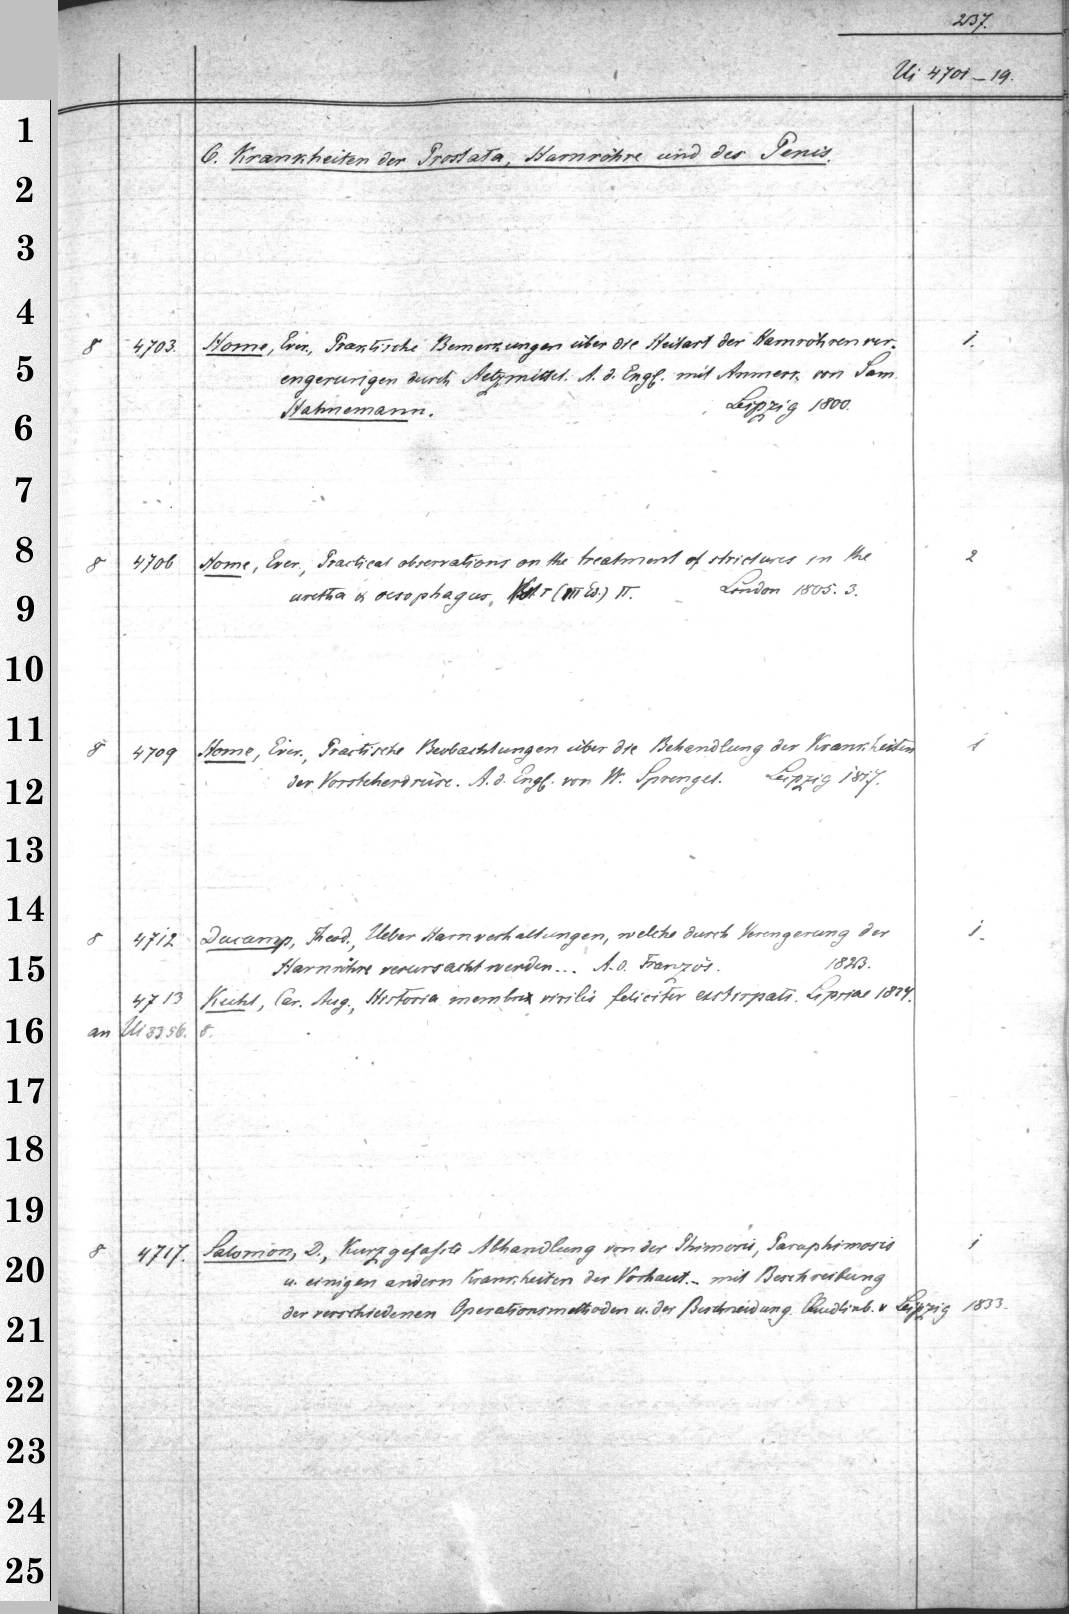 237.
Ui 4701-19.
6. Krankheiten der Prostata, Harnröhre und des Penis.
8 4703. Home, Ever., Praktische Bemerkungen über die Heilart der Harnröhrenver- 1.
engerungen durch Aetzmittel. A. d. Engl. mit Anmerk. von Sam.
Hahnemann. Leipzig 1800.
8 4706 Home, Ever., Practical observations on the treatment of strictures in the 2
uretha & oesophagus, I (III Ed.) II. London 1805. 3.
8 4709 Home, Ever., Practische Beobachtungen über die Behandlung der Krankheiten 1
der Vorsteherdrüse. A. d. Engl. von W. Sprengel. Leipzig 1817.
8 4712 Ducamp, Theod., Ueber Harnverhaltungen, welche durch Verengerung der 1.
Harnröhre verursacht werden... A. d. Französ. 1823.
4713 Kuhl, Car. Aug., Historia membri virilis feliciter exstirpati. Lipsiae 1824.
an Ui 3356. 8.
8 4717. Salomon, D., Kurzgefaßte Abhandlung von der Phimosis, Paraphimosis 1
u. einigen andern Krankheiten der Vorhaut.- mit Beschreibung
der verschiedenen Operationsmethoden u. der Beschneidung. Quedlinb. u Leipzig 1833.
1
2
3
4
5
6
7
8
9
10
11
12
13
14
15
16
17
18
19
20
21
22
23
24
25